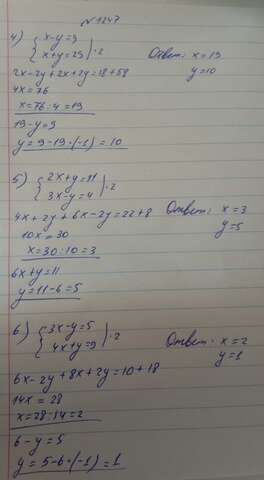 №1247
4) { x-y=9
x+y=29 | ·2
Ответ: x=19
y=10
2x-2y+2x+2y=18+58
4x=76
x=76:4=19
19-y=9
y=9-19·(-1)=10
5) { 2x+y=11
3x-y=4 | ·2
Ответ: x=3
y=5
4x+2y+6x-2y=22+8
10x=30
x=30:10=3
6x+y=11
y=11-6=5
6) { 3x-y=5
4x+y=9 | ·2
Ответ: x=2
y=1
6x-2y+8x+2y=10+18
14x=28
x=28:14=2
6-y=5
y=5-6·(-1)=1